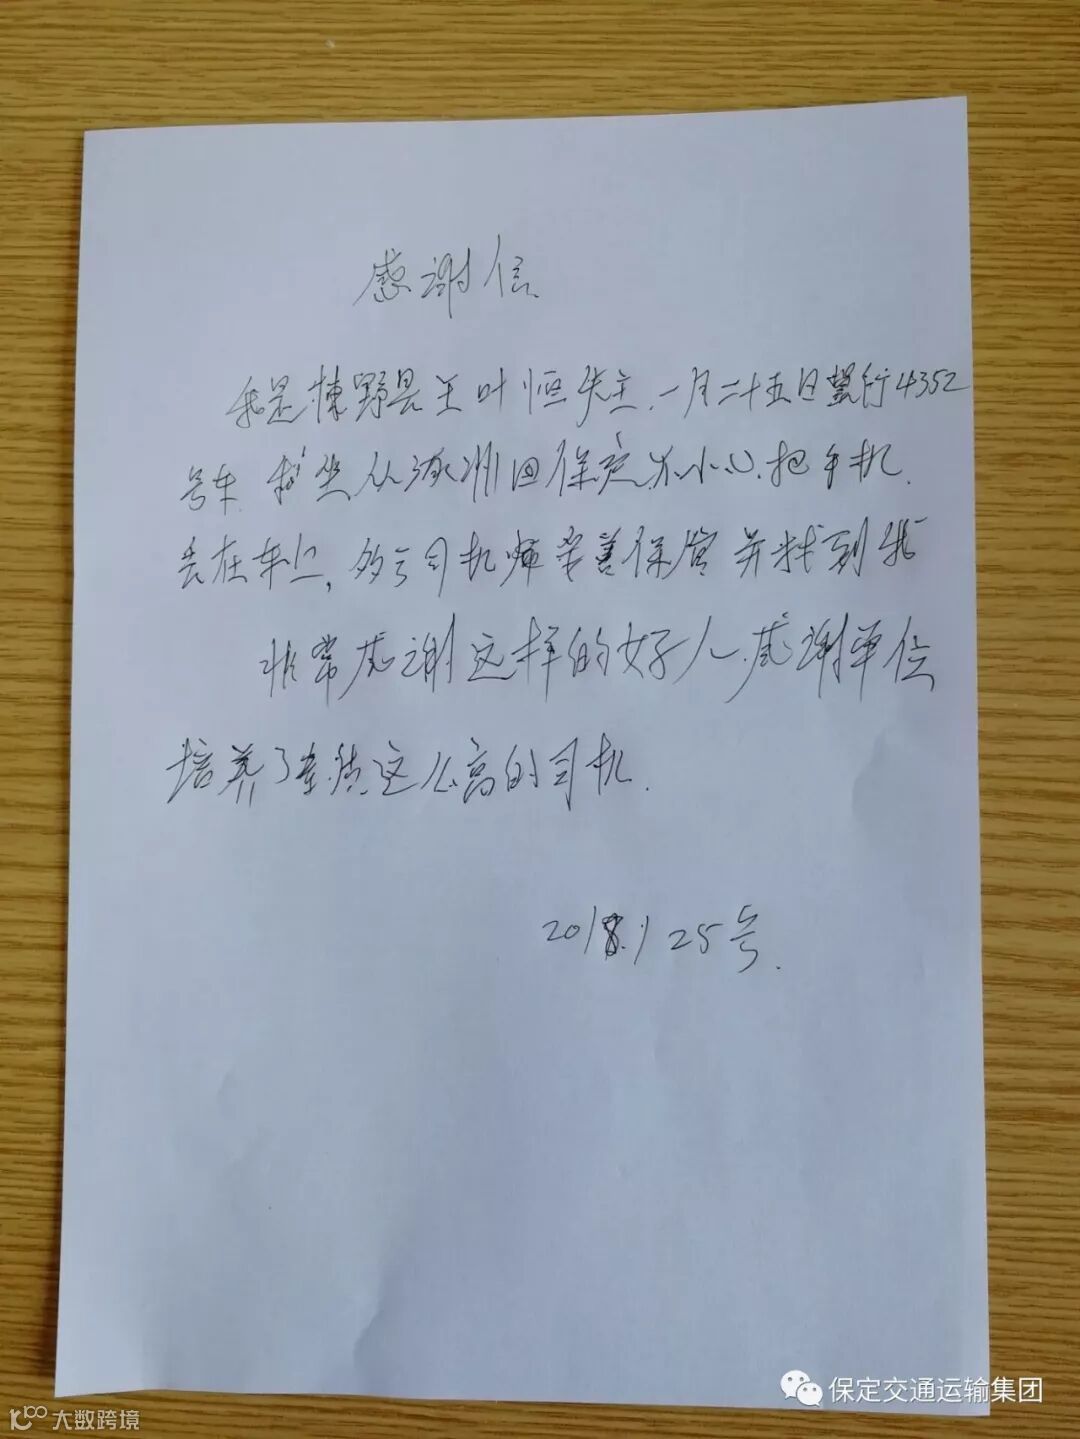 感谢信
我是博野县王叶恒失主.一月二十五日登行4352
号车.我坐从涿州回保定不小心.把手机
丢在车上,多亏司机师妥善保管并找到我
非常感谢这样的好人.感谢单位
培养了素质这么高的司机.
2018.1 25号.
保定交通运输集团
大数跨境